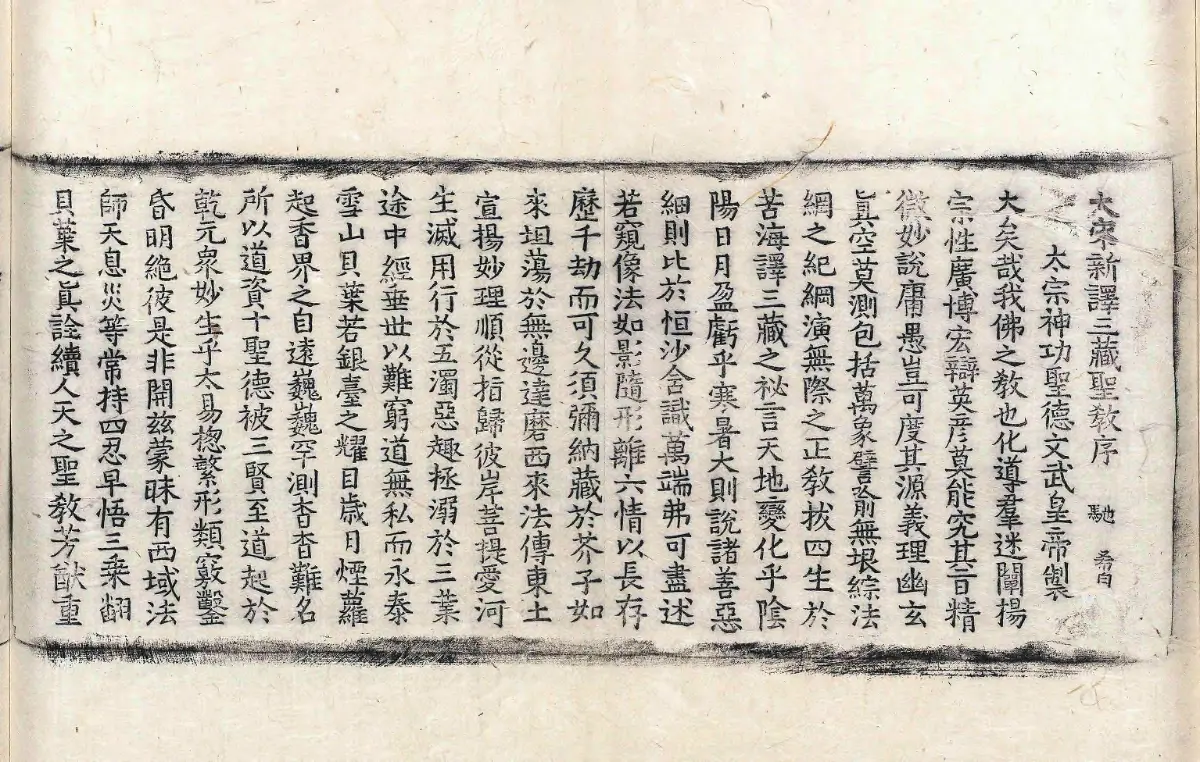 大宋新譯三藏聖敎序 馳 希白
太宗神功聖德文武皇帝製
大矣哉我佛之敎也化導羣迷闡揚
宗性廣博宏辯英彦莫能究其旨精
微妙說庸愚豈可度其源義理幽玄
眞空莫測包括萬象譬喻無垠綜法
綱之紀綱演無際之正敎拔四生於
苦海譯三藏之祕言天地變化乎陰
陽日月盈虧乎寒暑大則說諸善惡
細則比於恒沙含識萬端弗可盡述
若窺像法如影隨形離六情以長存
歷千劫而可久須彌納藏於芥子如
來坦蕩於無邊達磨西來法傳東土
宣揚妙理順從指歸彼岸菩提愛河
生滅用行於五濁惡趣拯溺於三業
途中經垂世以難窮道無私而永泰
雪山貝葉若銀臺之耀目歲月煙蘿
起香界之自遠巍巍罕測杳杳難名
所以道資十聖德被三賢至道起於
乾元衆妙生乎太易楤繁形類竅鑿
昏明絶彼是非開兹蒙昧有西域法
師天息災等常持四忍早悟三乘翻
貝葉之眞詮續人天之聖敎芳猷重